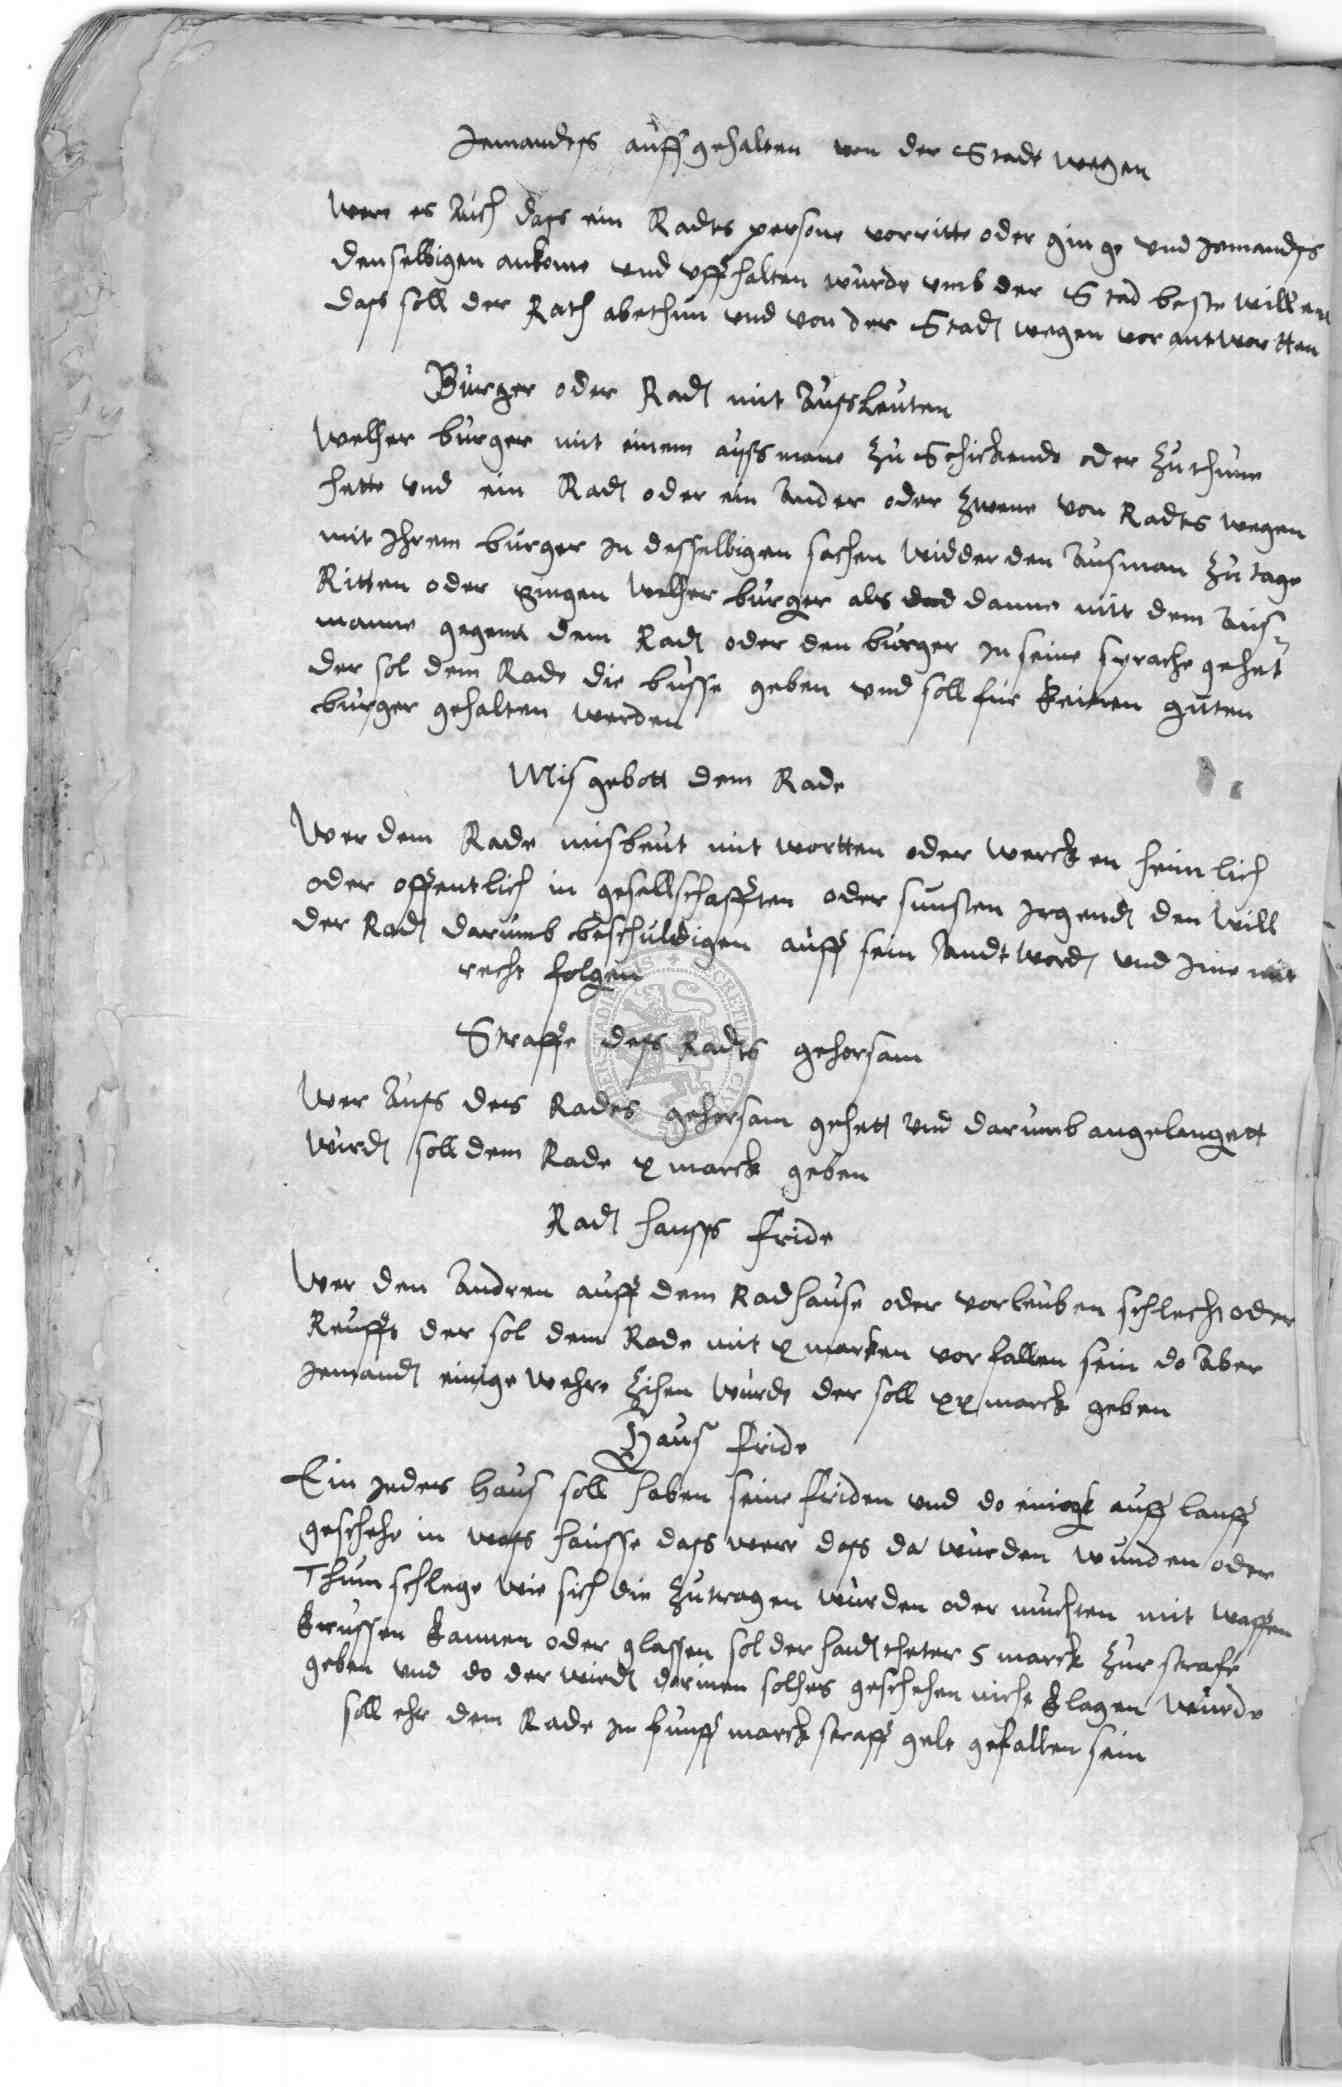 Jemandts auffgehalten von der Stadt wegen
Were es Auch dass ein Radts persone vorritte oder ginge vnd Jemandts
denselbigen ankome vnd vffhalten wurde vmb der Stad beste willen
dass soll der Rath abethun vnd von der Stadt wegen vorantwortten
Burger oder Radt mit Aussleuten
Welcher burger mit einem aussmane zu Schickende oder zuthune
hette vnd ein Radt oder ein Ander oder zwene von Radts wegen
mit Ihrem burger in desselbigen sachen widder den Ausman zu tage
Ritten oder gingen welcher burger als dand danne mitt dem Aus-
manne gegenn dem Radt oder den burger in seine sprache gehet
der sol dem Rade die busse geben vnd soll für keinen guten
burger gehalten werden
Misgebott dem Rade
Wer dem Rade misbeut mit wortten oder wercken heimlich
oder offentlich in gesellschafften oder sunsten Irgendt den will
der Radt darumb beschuldigen auff sein Andtwordt vnd Ime mit
recht folgen
Straffe dess Radts gehorsam
Wer Auss des Rades gehorsam gehett vnd darumb angelangett
wirdt soll dem Rade x marck geben
Radt hauss fride
Wer den Andren auff dem Radhause oder vorleuben schlecht oder
Reufft der sol dem Rade mit x marken vorfallen sein do Aber
Jemandt einige wehre zihen wurde der soll xx marck geben
Haus fride
Ein Jedes Haus soll haben seine friden vnd do einigk aufflauff
geschehe in wass hausse dass were dass da wurden wunden oder
Thumschlege wie sich die zutragen wurden oder muchten mit waffen
krussen kannen oder glassen sol der handtheter 5 marck zur strafe
geben vnd do der wirdt darinen solches geschehen nicht klagen wurde
soll ehr dem Rade in funff marck straff gelt gefallen sein